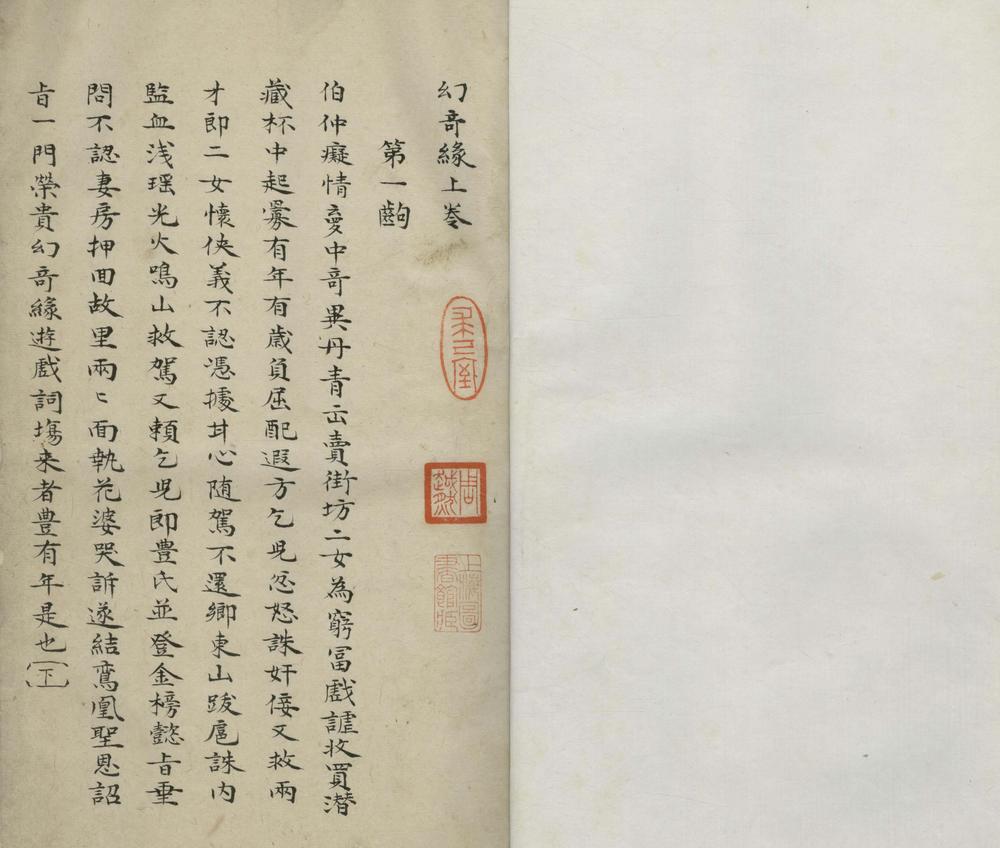 幻竒緣上卷
第一齣
伯仲癡情夐中竒異丹青出賣街坊二女為窮冨戲謔收買潛
藏杯中起釁有年有歲負屈配遐方乞児忿怒誅奸佞又救兩
才即二女懷俠義不認憑據甘心随駕不還鄉東山跋扈誅内
監血浅瑶光火鳴山救駕又頼乞児即豊氏並登金榜懿旨垂
問不認妻房押囬故里兩〻面執花婆哭訴遂結鸞凰聖恩詔
旨一門榮貴幻竒緣遊戲詞塲来者豊有年是也(下)
周越然
上海圖書館藏